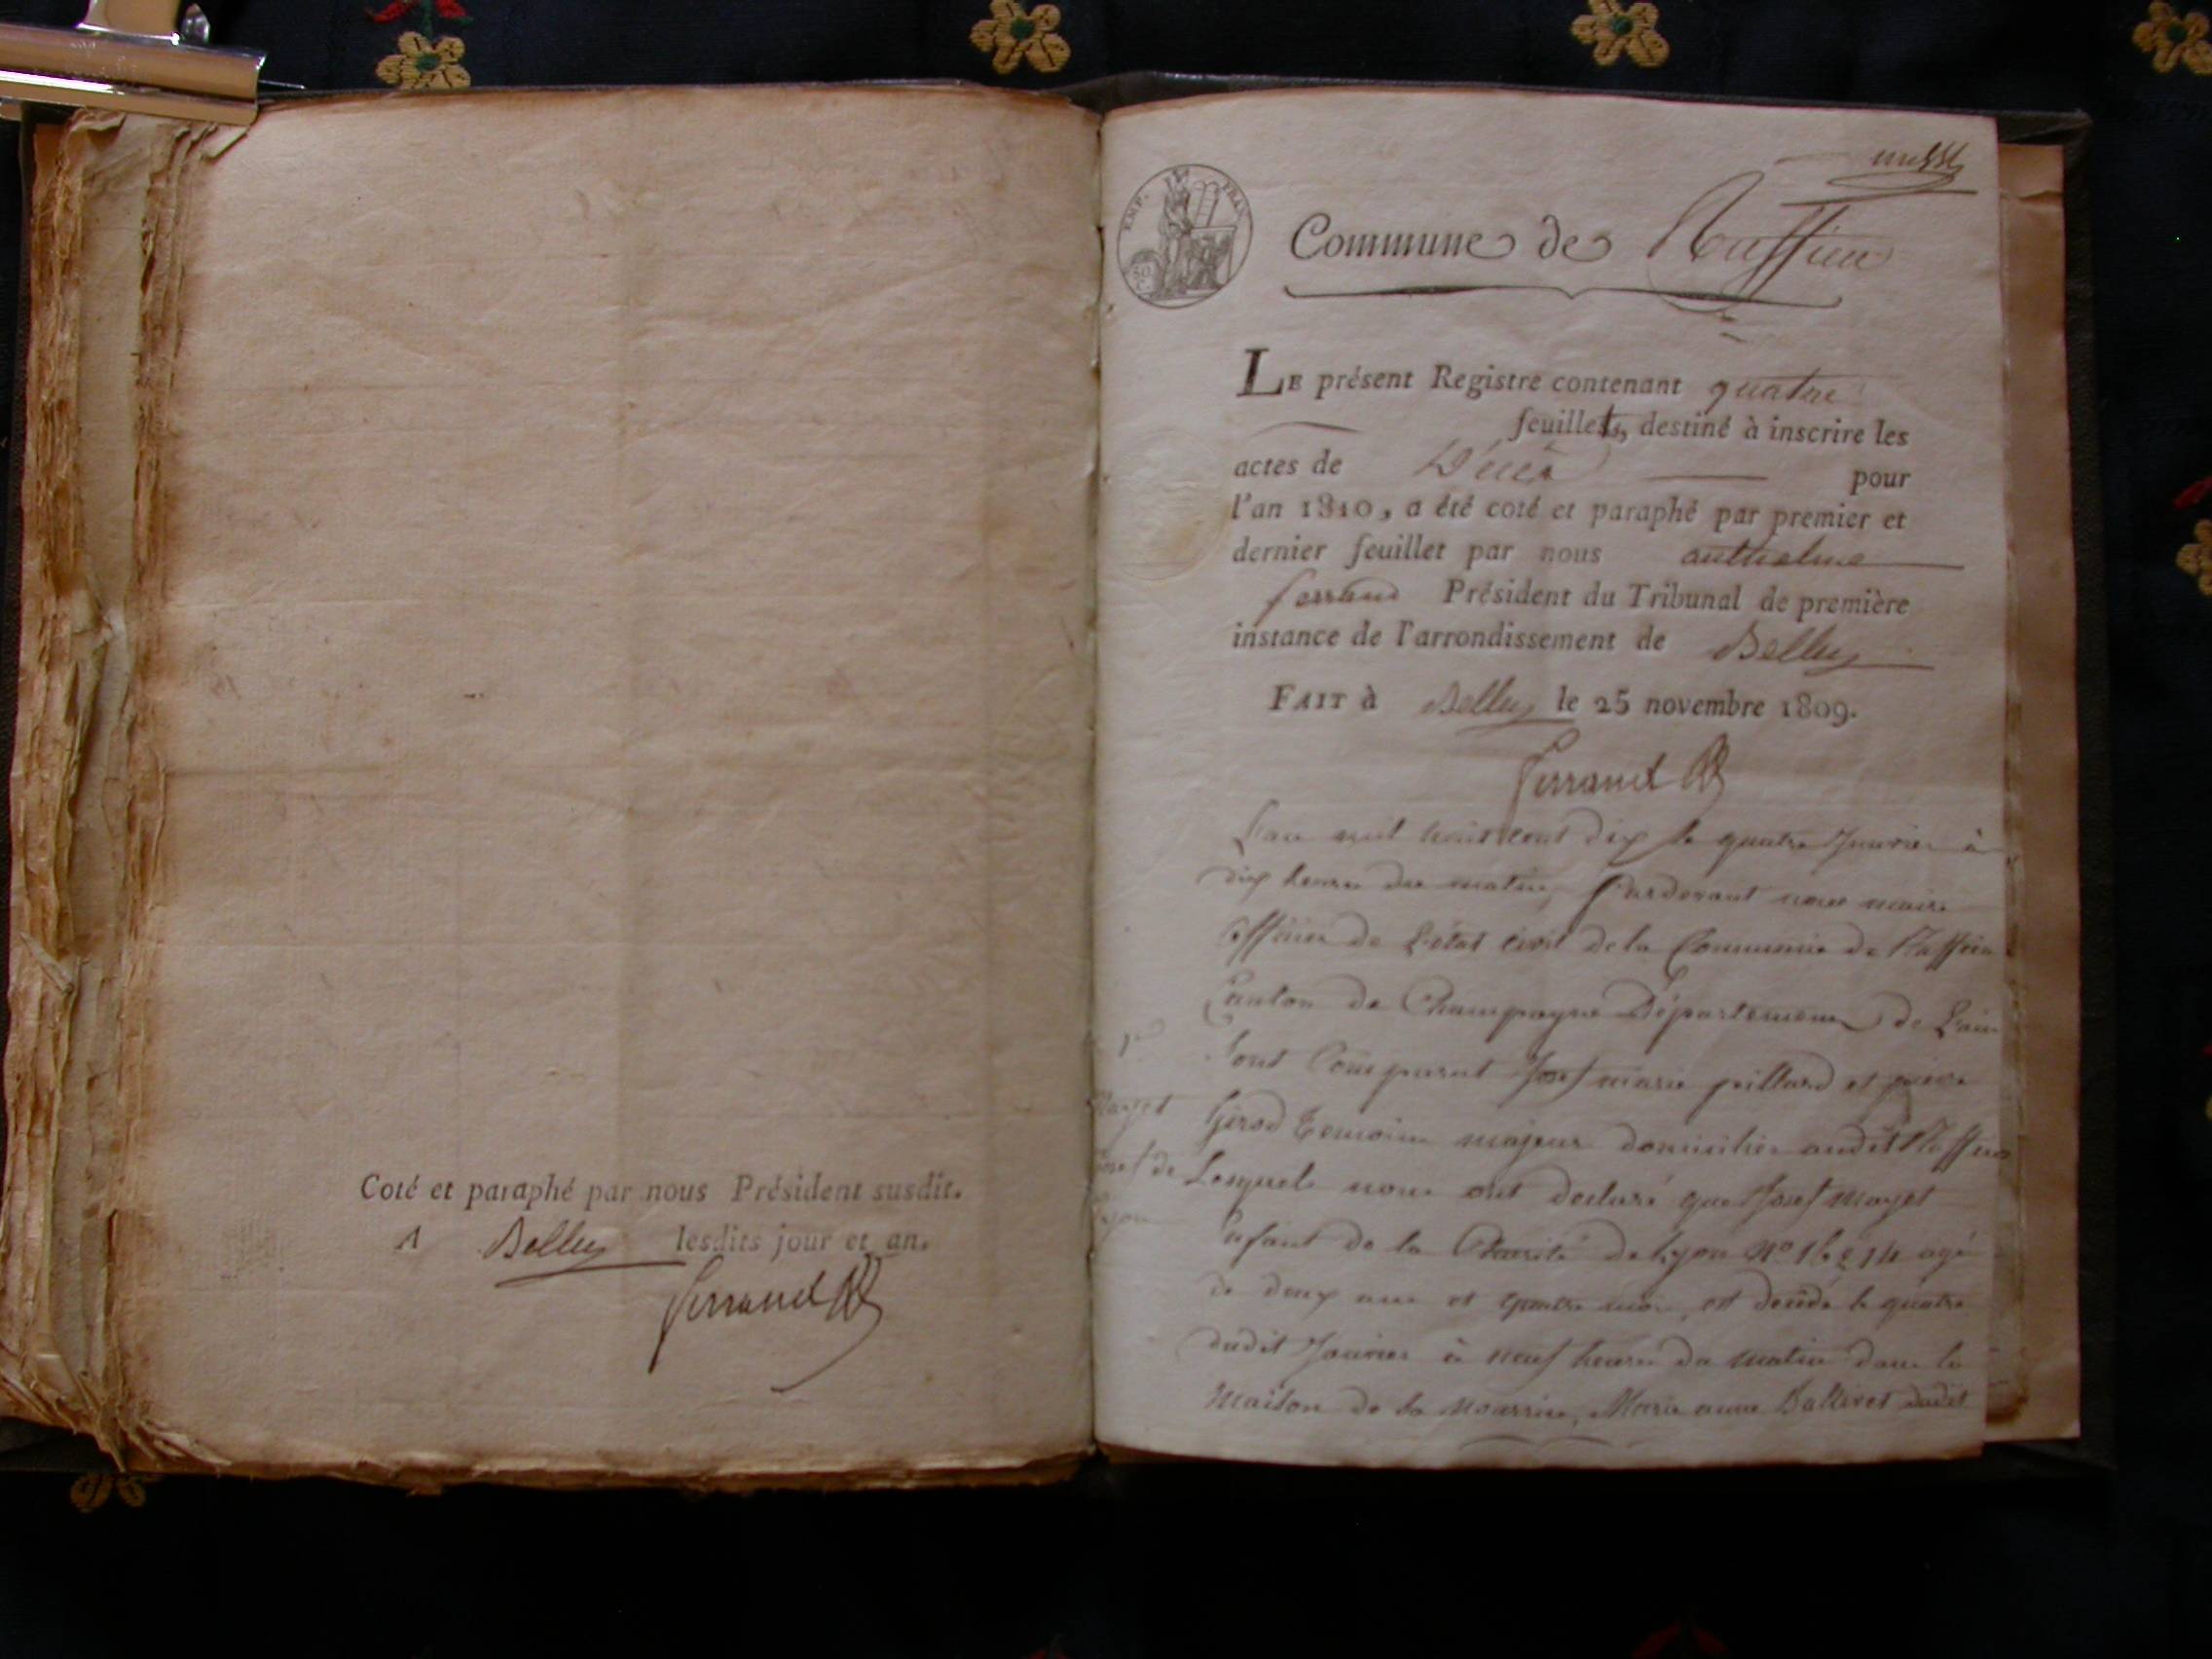 Coté et paraphé par nous Président susdit.
A Belley lesdits jour et an.
Ferrand
EMP. FRAN.
Commune de Ruffieu
LE présent Registre contenant quatre
feuillets, destiné à inscrire les
actes de Décès pour
l'an 1810, a été coté et paraphé par premier et
dernier feuillet par nous anthelme
ferrand Président du Tribunal de première
instance de l'arrondissement de Belley
FAIT à Belley le 25 novembre 1809.
Ferrand
L'an mil huit cent dix le quatre Janvier à
dix heures du matin, Pardevant nous maire
officier de L'état civil de la Commune de Ruffieu
Canton de Champagne Département de L'ain
Sont Comparut Josef marie pillard et
Girod temoins majeur domicilies audit Ruffieu
Lesquels nous ont declaré que Josef mayet
Enfant de la Charité de Lyon N° agé
de deux ans et quatre mois, est décédé le quatre
dudit Janvier à neuf heures du matin dans la
Maison de la Nourrice, Marie anne Ballivet dudit